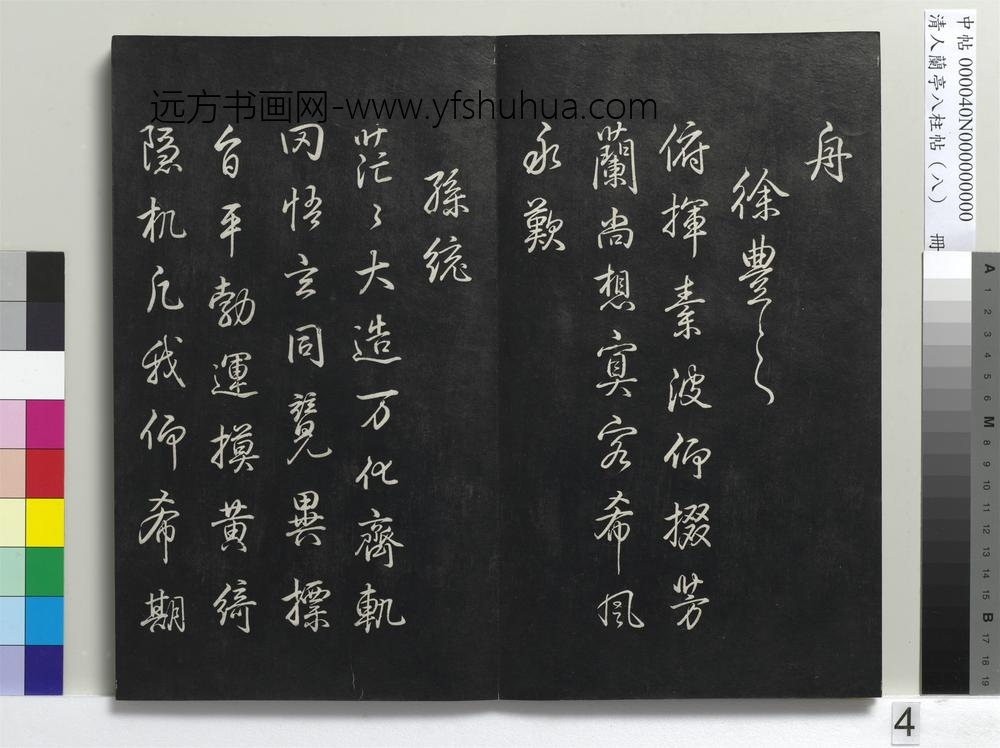 远方书画网-www.yfshuhua.com
舟
徐豐之
俯揮素波仰掇芳
蘭尚想冥客希風
永歎
孫統
茫々大造万化齊軌
罔悟玄同競異摽
旨平勃運摸黃綺
隱机凡我仰希期
中帖 000040N000000000
清人蘭亭八柱帖(八) 冊
A 1 2 3 4 5 6 M 8 9 10 11 12 13 14 15 B 17 18 19
4